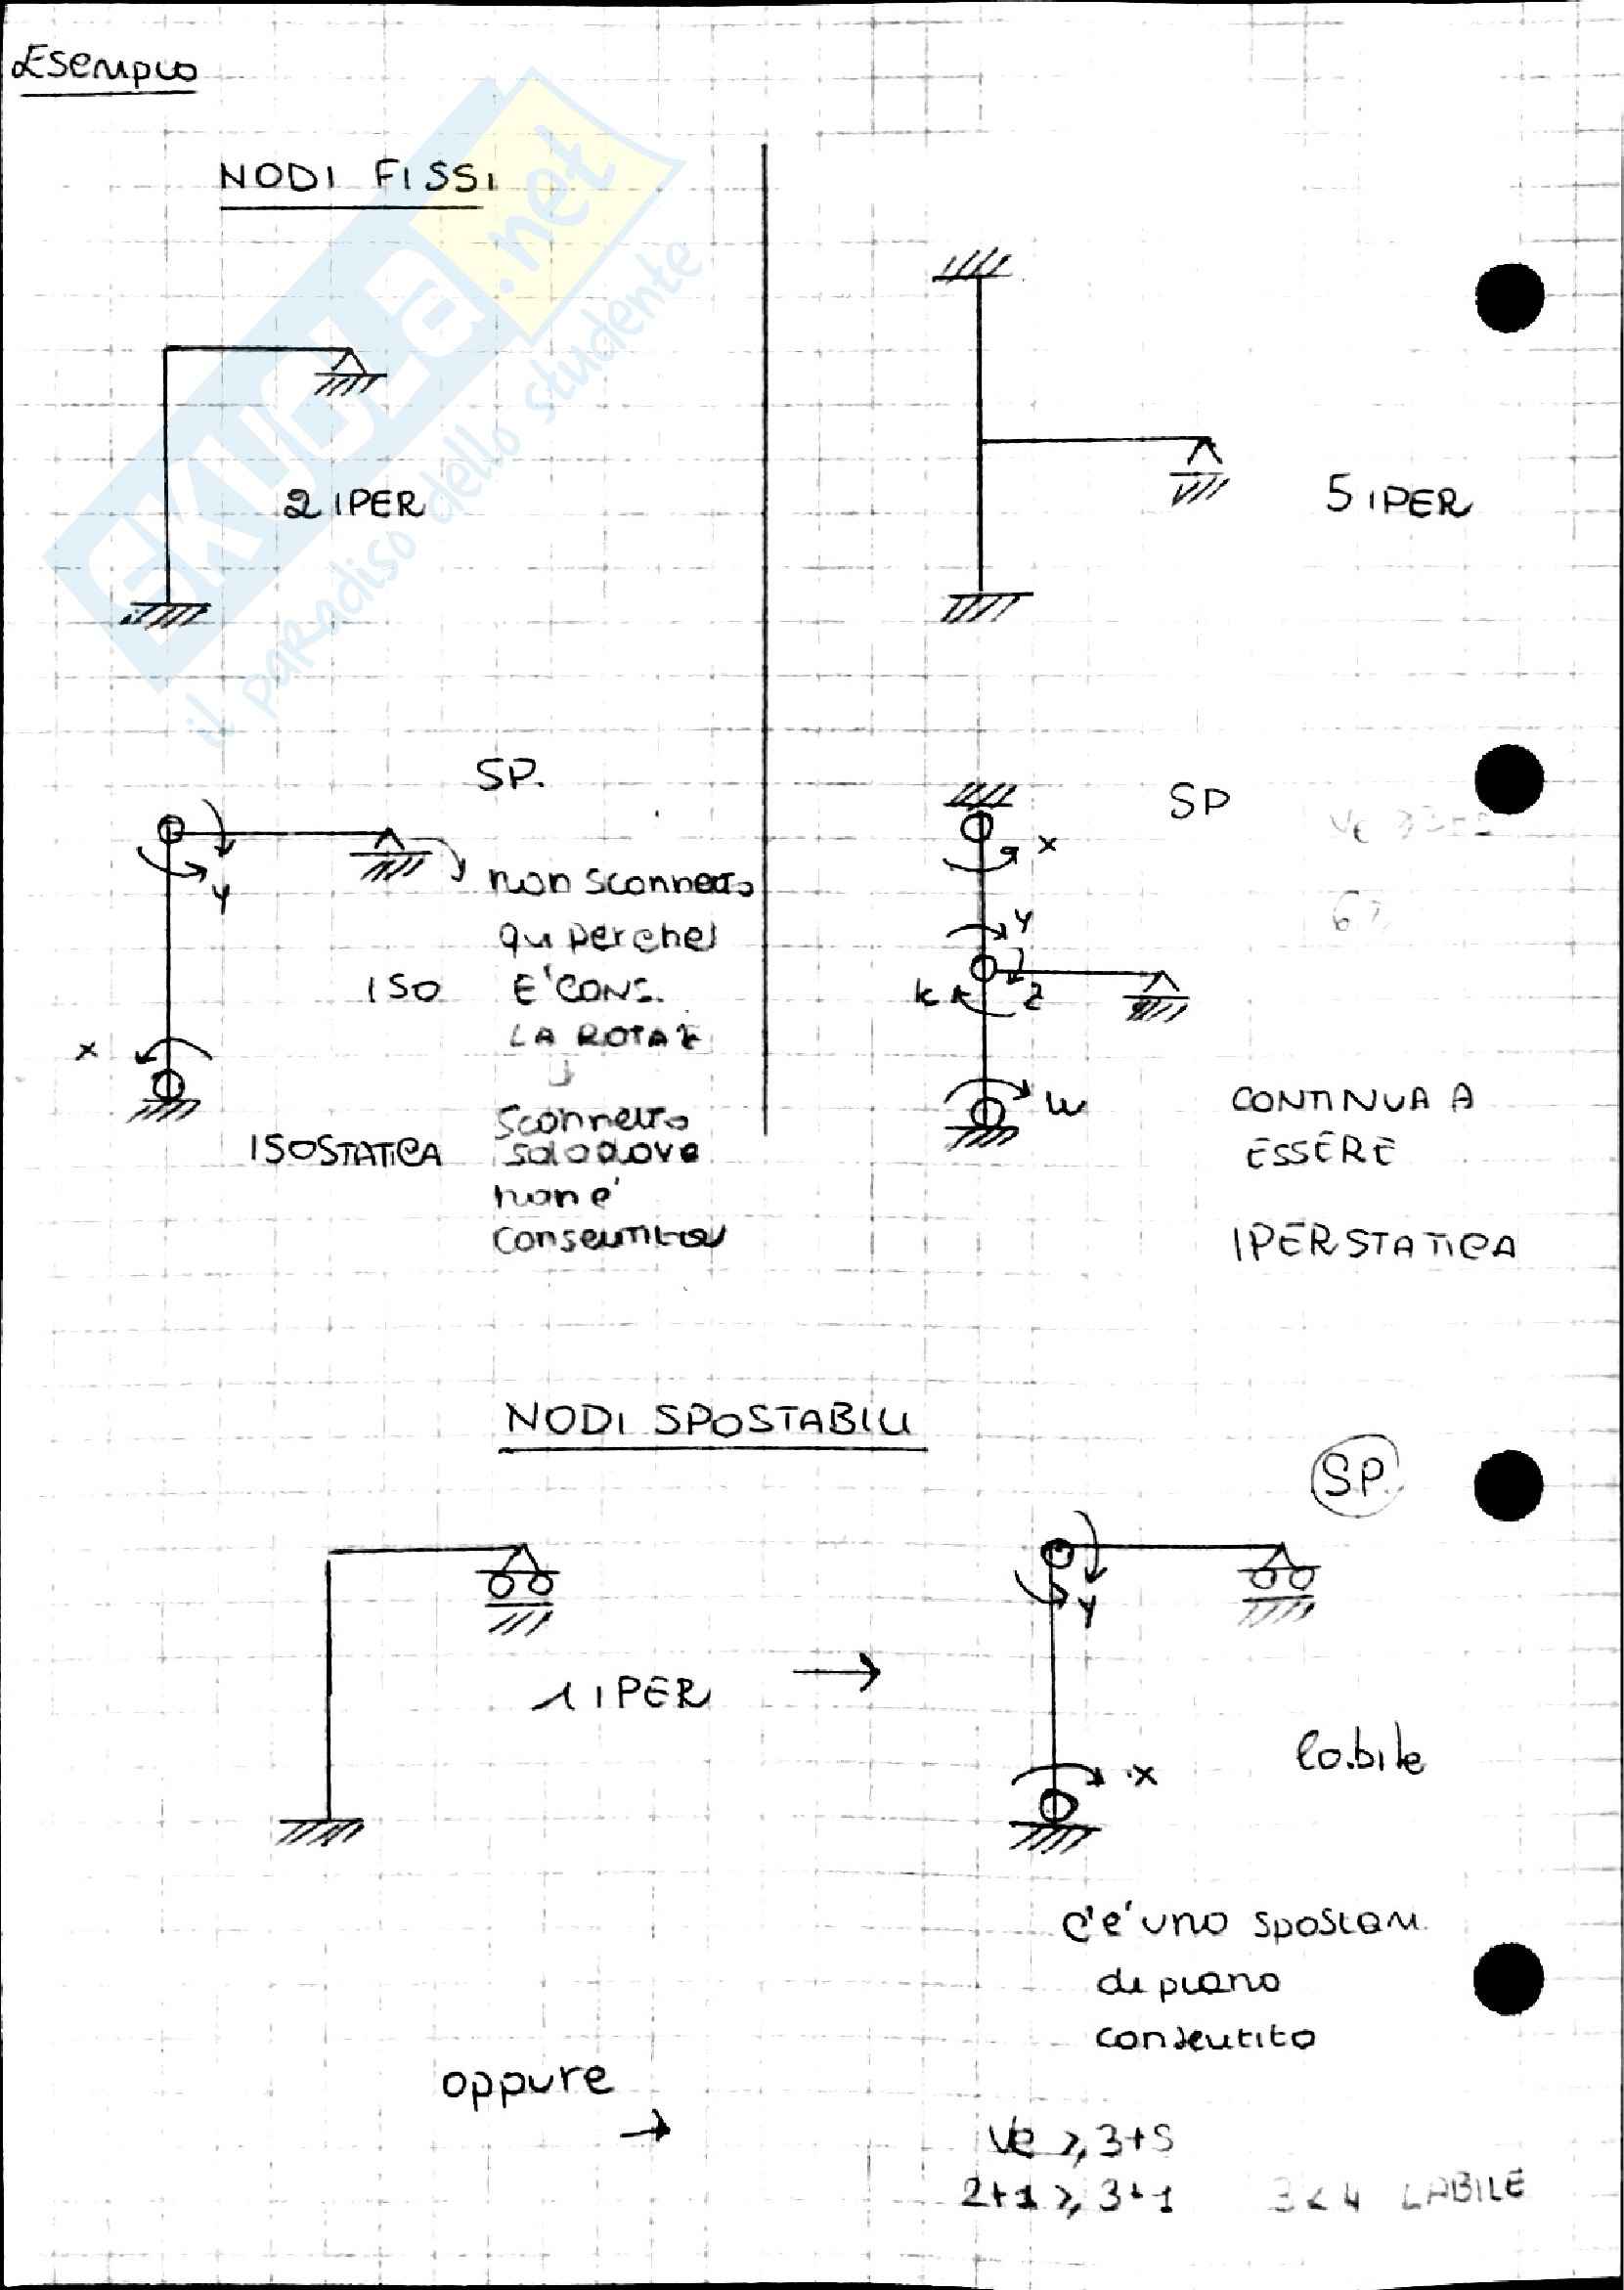 Esempio
NODI FISSI
2 IPER
5 IPER
SP.
Y
non sconnetto
qui perche'
E' CONS.
LA ROTAZ
ISO
X
sconnetto
solo dove
non e'
consentita
ISOSTATICA
SP
X
Y
K
Z
W
CONTINUA A
ESSERE
IPERSTATICA
NODI SPOSTABILI
SP.
1 IPER
Y
X
labile
c'e' uno spostam.
di piano
consentito
oppure
Ve ≥ 3+S
2+1 ≥ 3+1 3<4 LABILE
SKUOLA.net
il paradiso dello studente